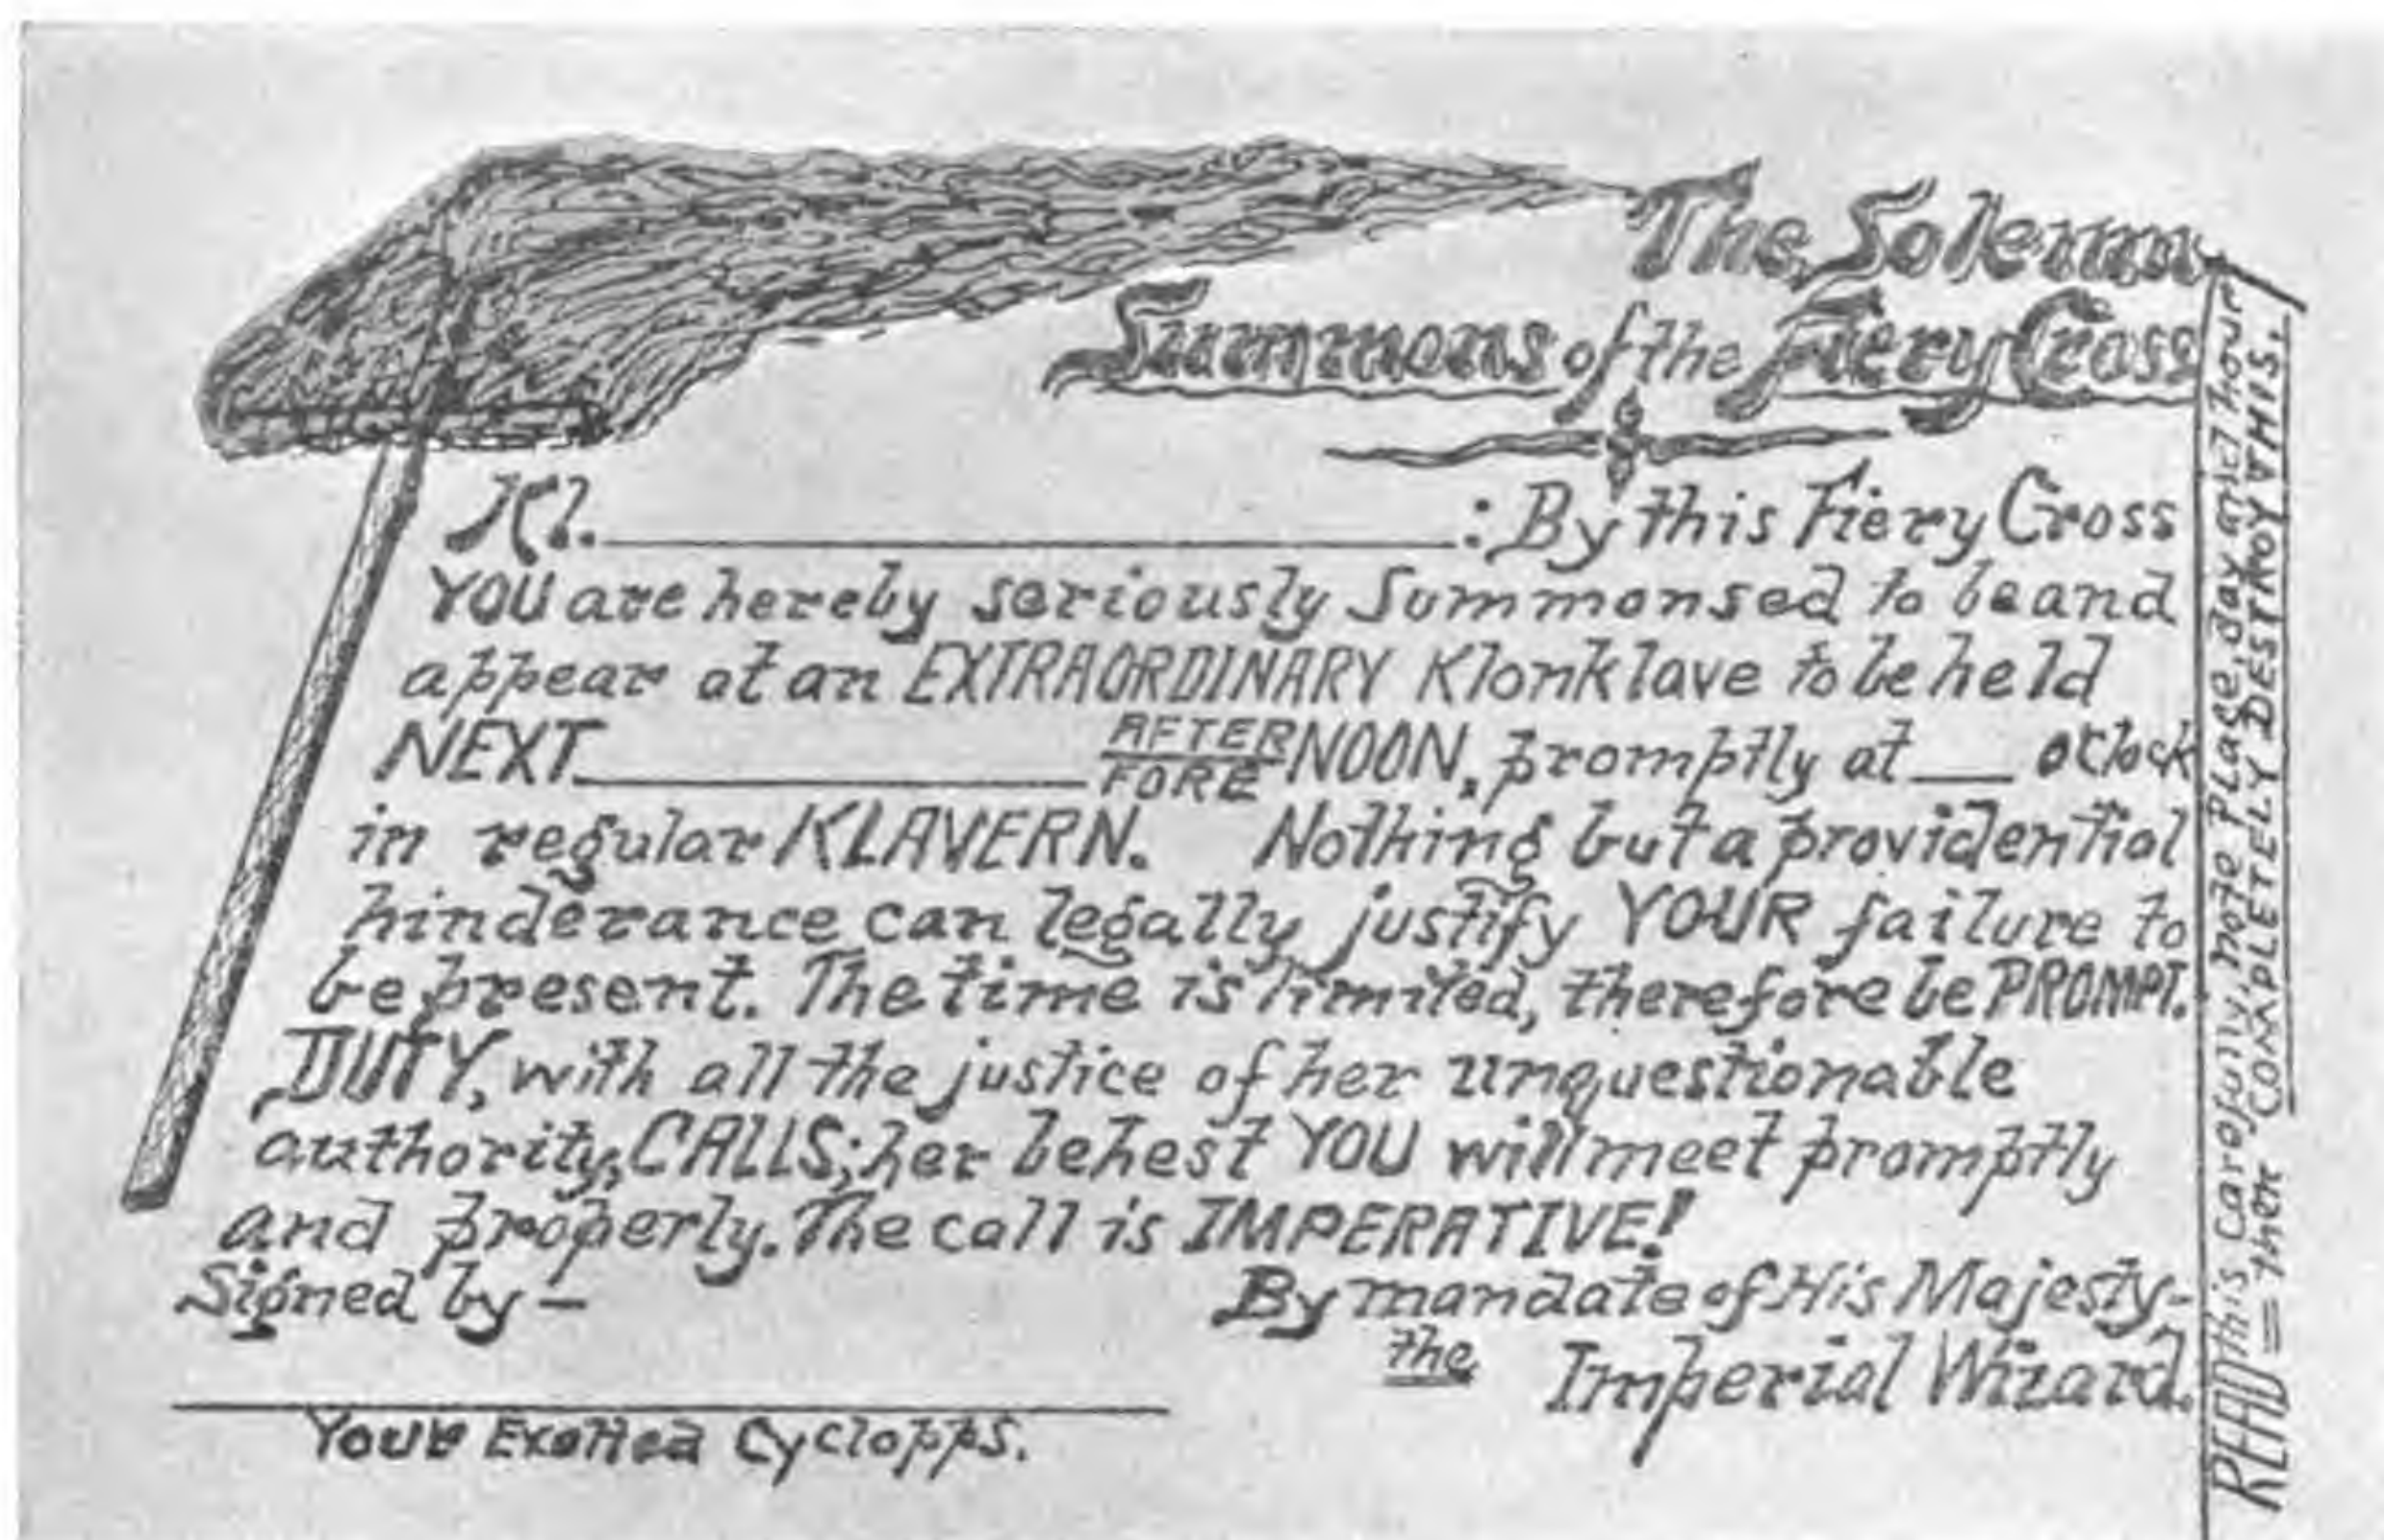 The Solemn
Summons of the Fiery Cross
Kl. : By this Fiery Cross
YOU are hereby seriously Summonsed to be and
appear at an EXTRAORDINARY Klonklave to be held
NEXT AFTER
FORE NOON, promptly at o'clock
in regular KLAVERN. Nothing but a providential
hinderance can legally justify YOUR failure to
be present. The time is limited, therefore be PROMPT.
DUTY, with all the justice of her unquestionable
authority, CALLS; her behest YOU will meet promptly
and properly. The call is IMPERATIVE!
Signed by –
By mandate of His Majesty-
the Imperial Wizard.
Your Exalted Cyclopps.
READ this carefully, note place, day and hour
= then COMPLETELY DESTROY THIS.